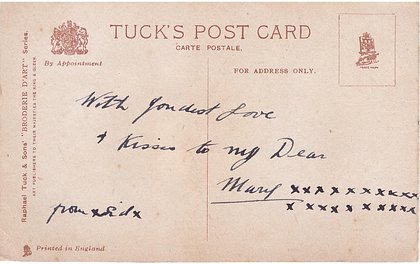 TUCK'S POST CARD
CARTE POSTALE.
By Appointment
FOR ADDRESS ONLY.
TRADE MARK
Raphael Tuck & Sons' "BRODERIE D'ART" Series.
ART PUBLISHERS TO THEIR MAJESTIES THE KING & QUEEN.
With fondest Love
& Kisses to my Dear
Mary x x x x x x x x x x x
x x x x x x x x x x
from x Sid x
Printed in England